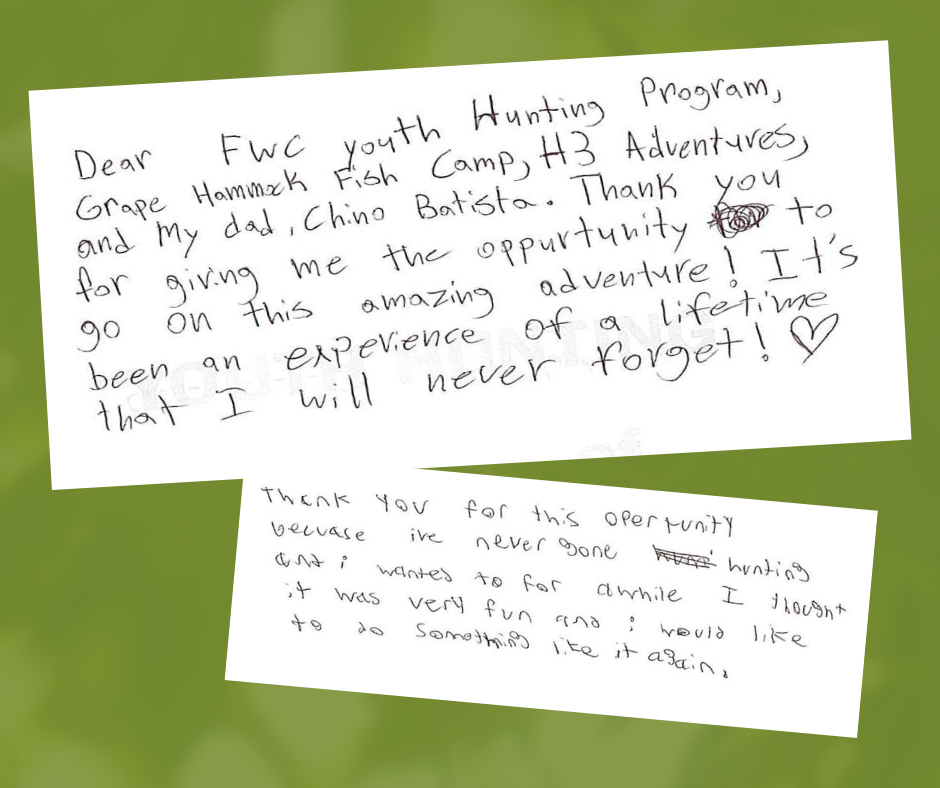 Dear FWC youth Hunting Program,
Grape Hammock Fish Camp, H3 Adventures,
and My dad, Chino Batista. Thank you
for giving me the oppurtunity to
go on this amazing adventure! It's
been an experience of a lifetime
that I will never forget! ♡
YOUTH HUNTING
of
Thank You for this oper tunity
becuase ive never gone hunting
and i wanted to for awhile I thought
it was very fun and i would like
to do something like it again.